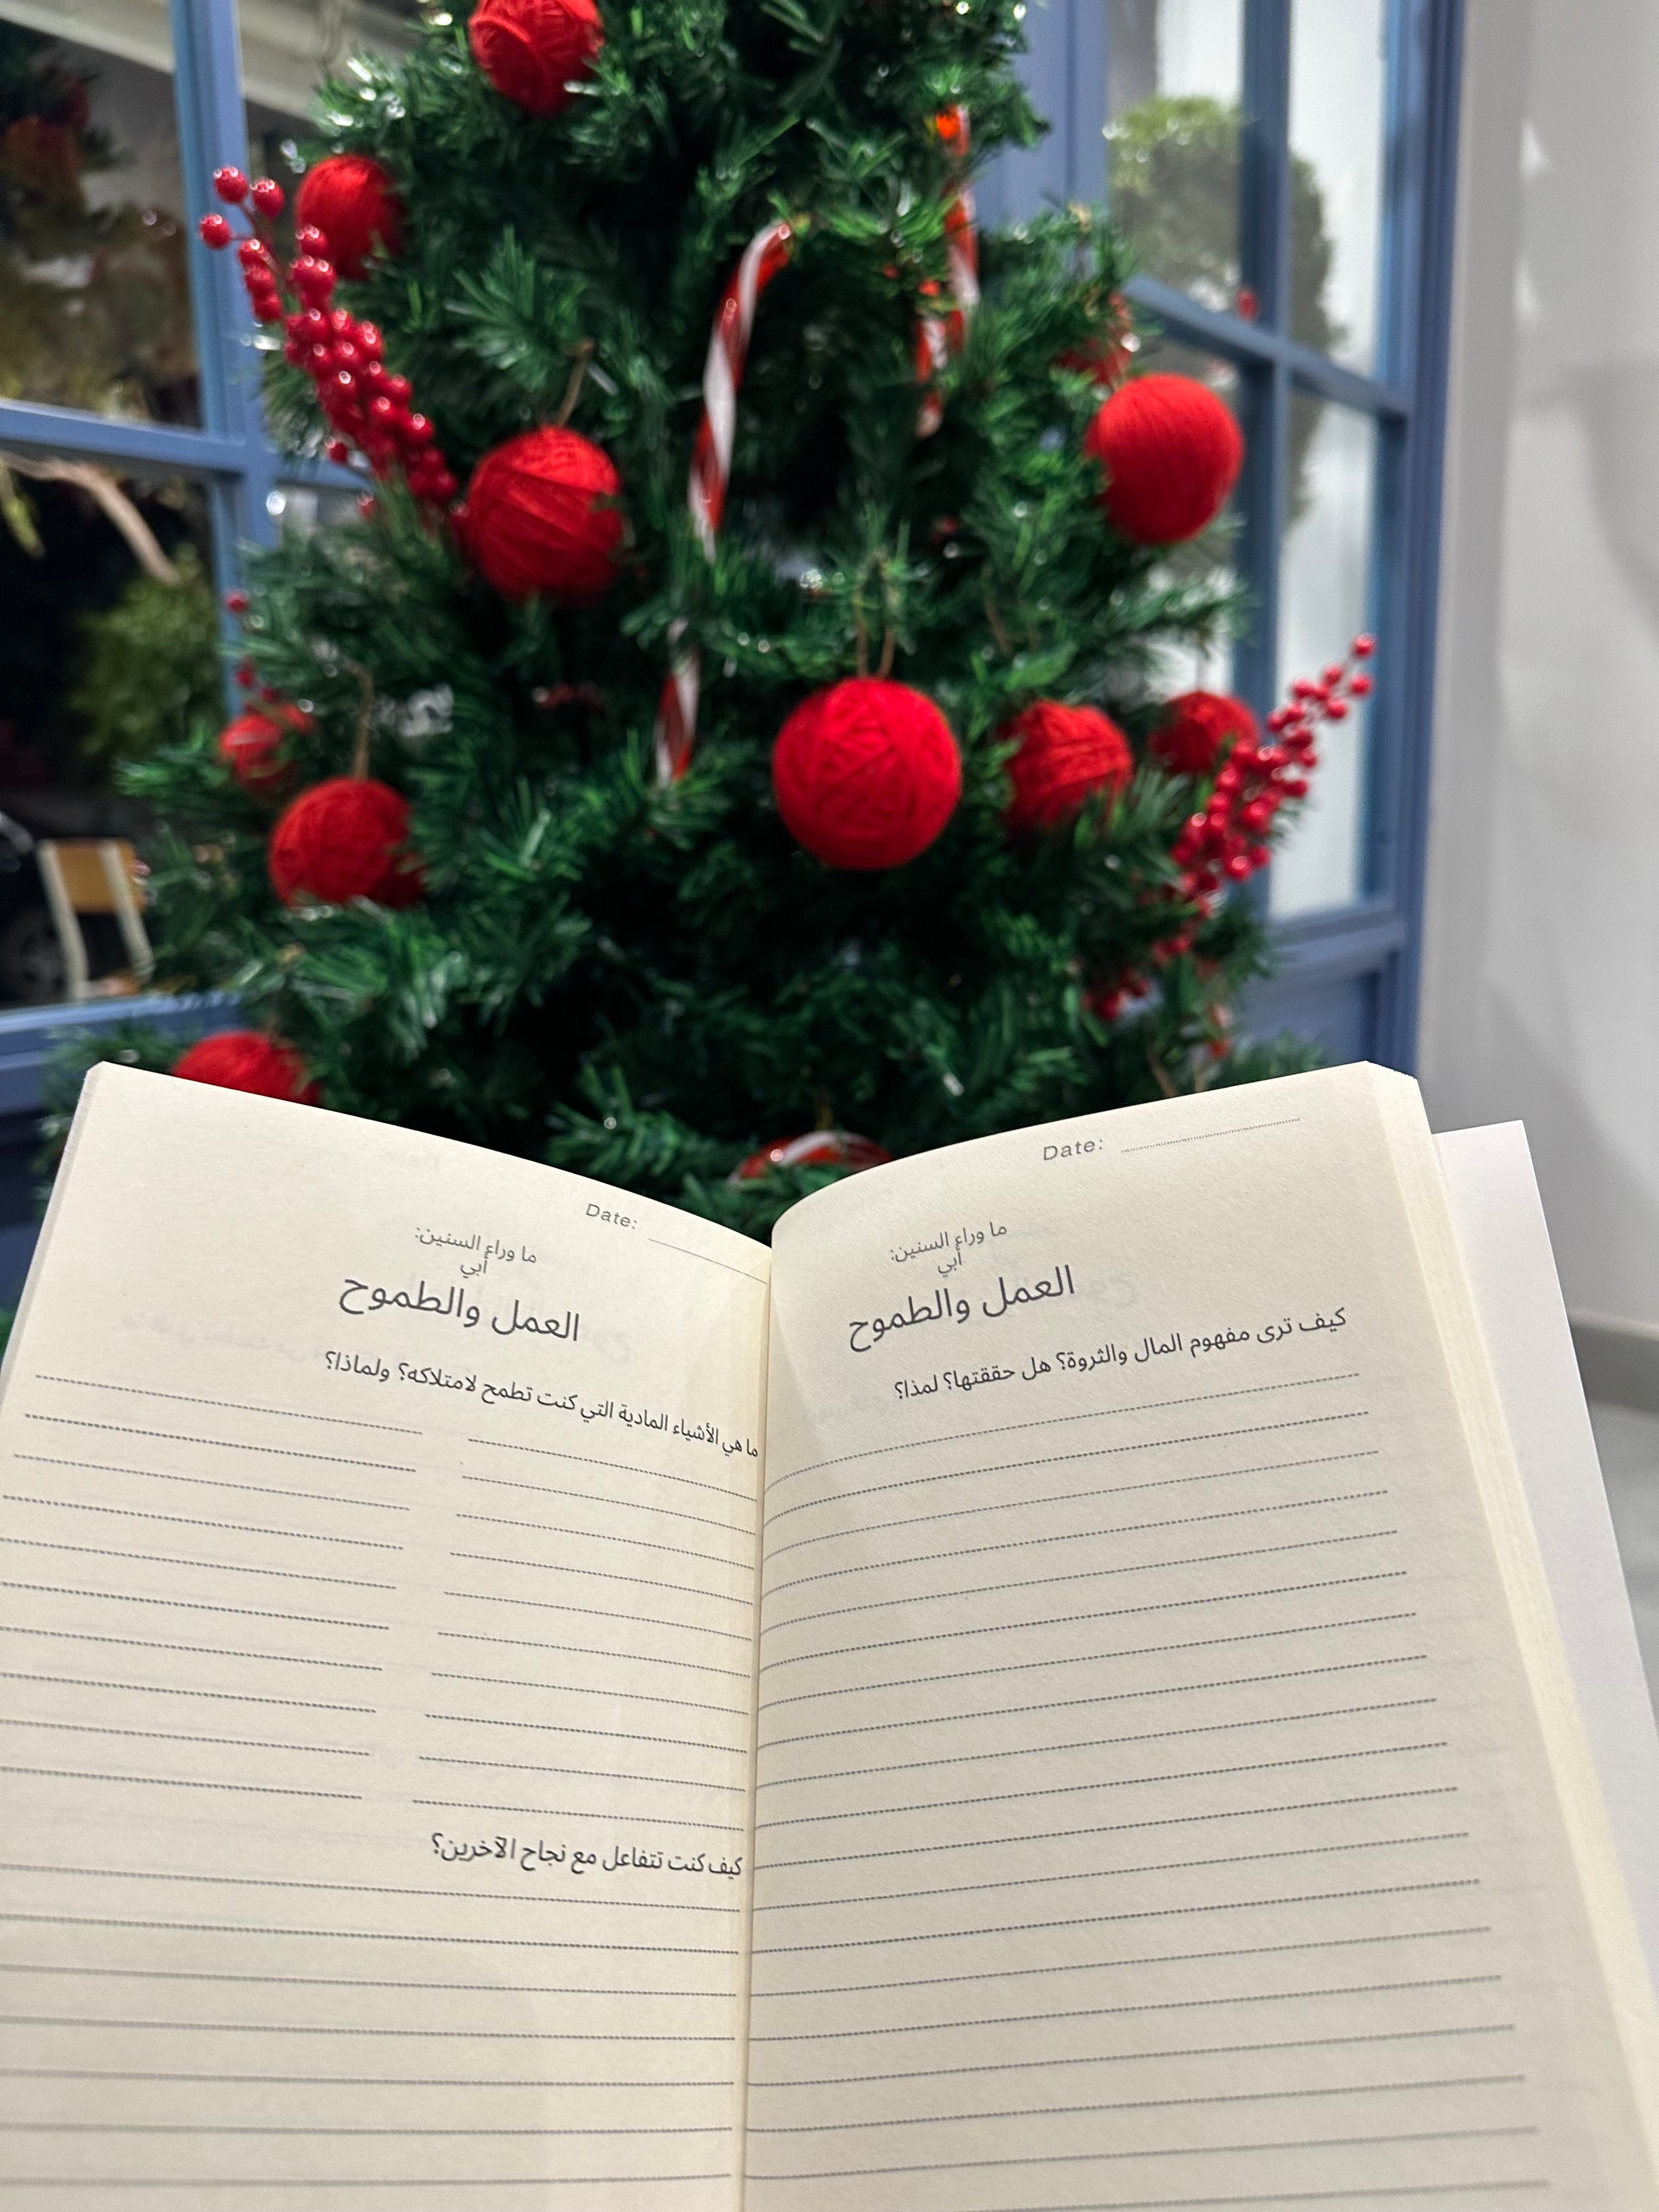 Date:
ما وراء السنين:
أبي
العمل والطموح
كيف ترى مفهوم المال والثروة؟ هل حققتها؟ لمذا؟
Date:
ما وراء السنين:
أبي
العمل والطموح
ما هي الأشياء المادية التي كنت تطمح لامتلاكه؟ ولماذا؟
كيف كنت تتفاعل مع نجاح الآخرين؟